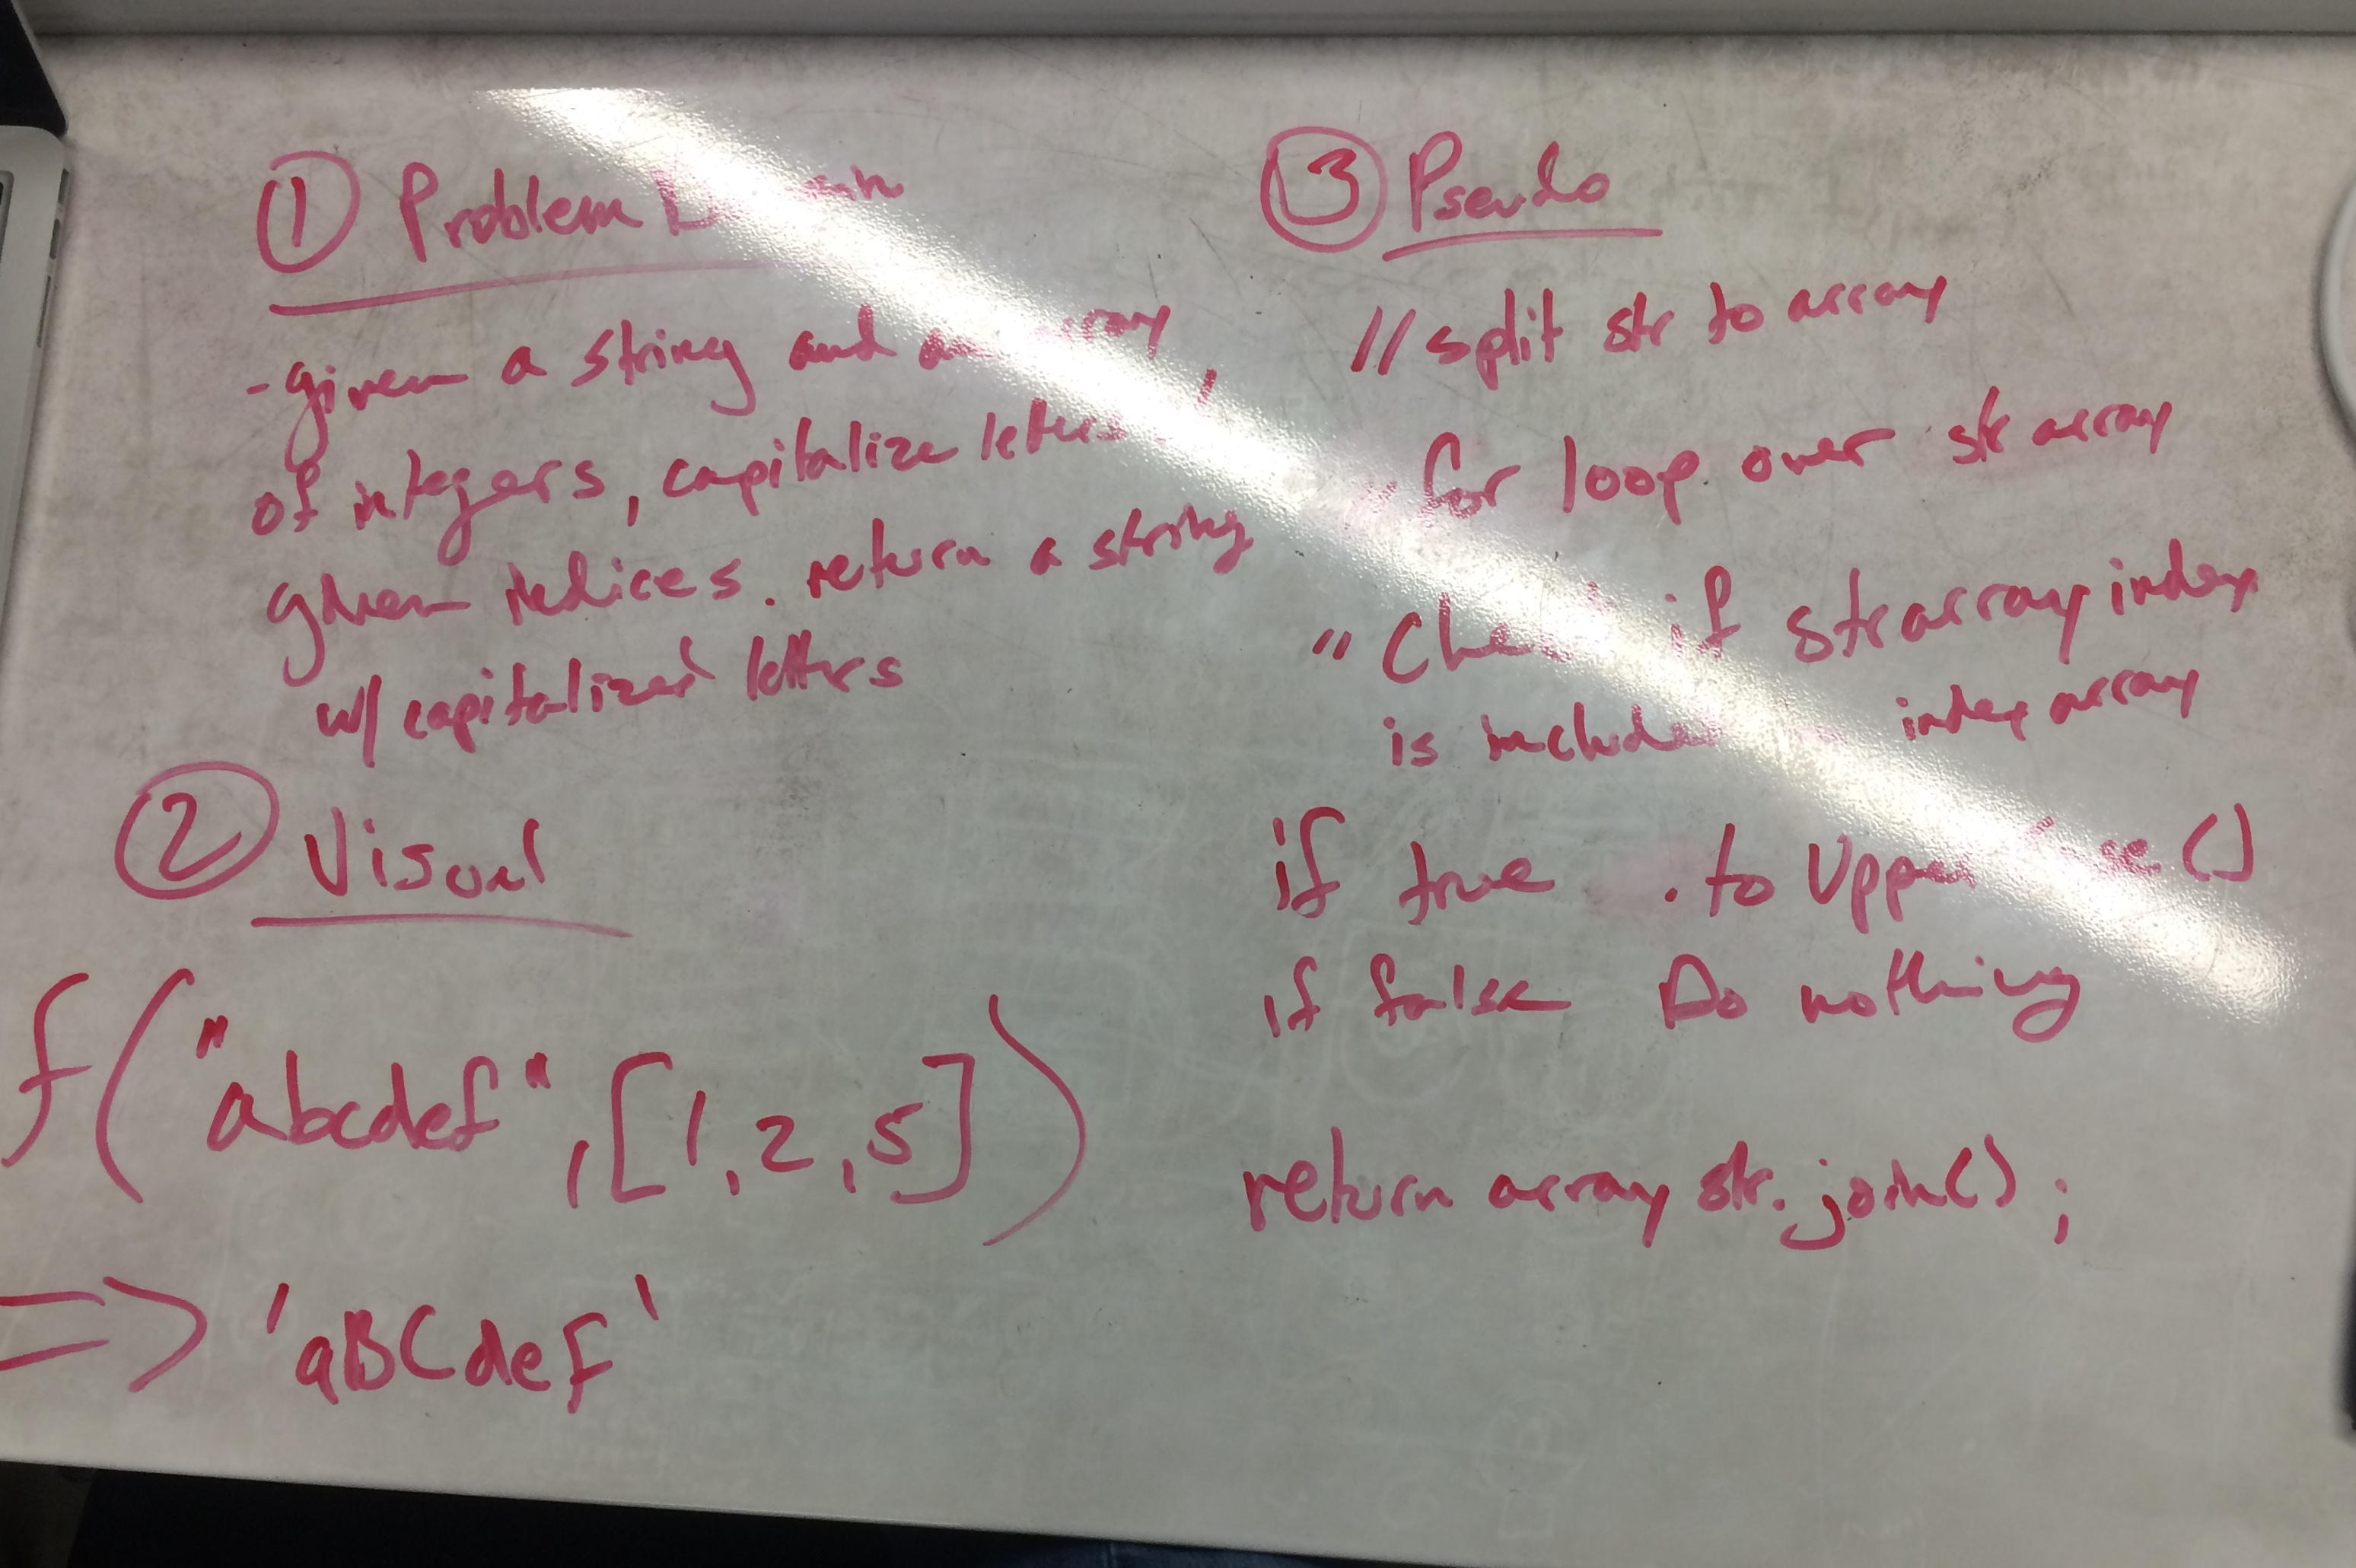 ① Problem
- given a string and an array
of integers, capitalize letters
given indices. return a string
w/ capitalized letters
② Visual
f("abcdef", [1,2,5])
=> 'aBCdeF'
③ Pseudo
// split str to array
// for loop over str array
" Check if str array index
is included index array
if true .toUpperCase()
if false Do nothing
return array str.join();